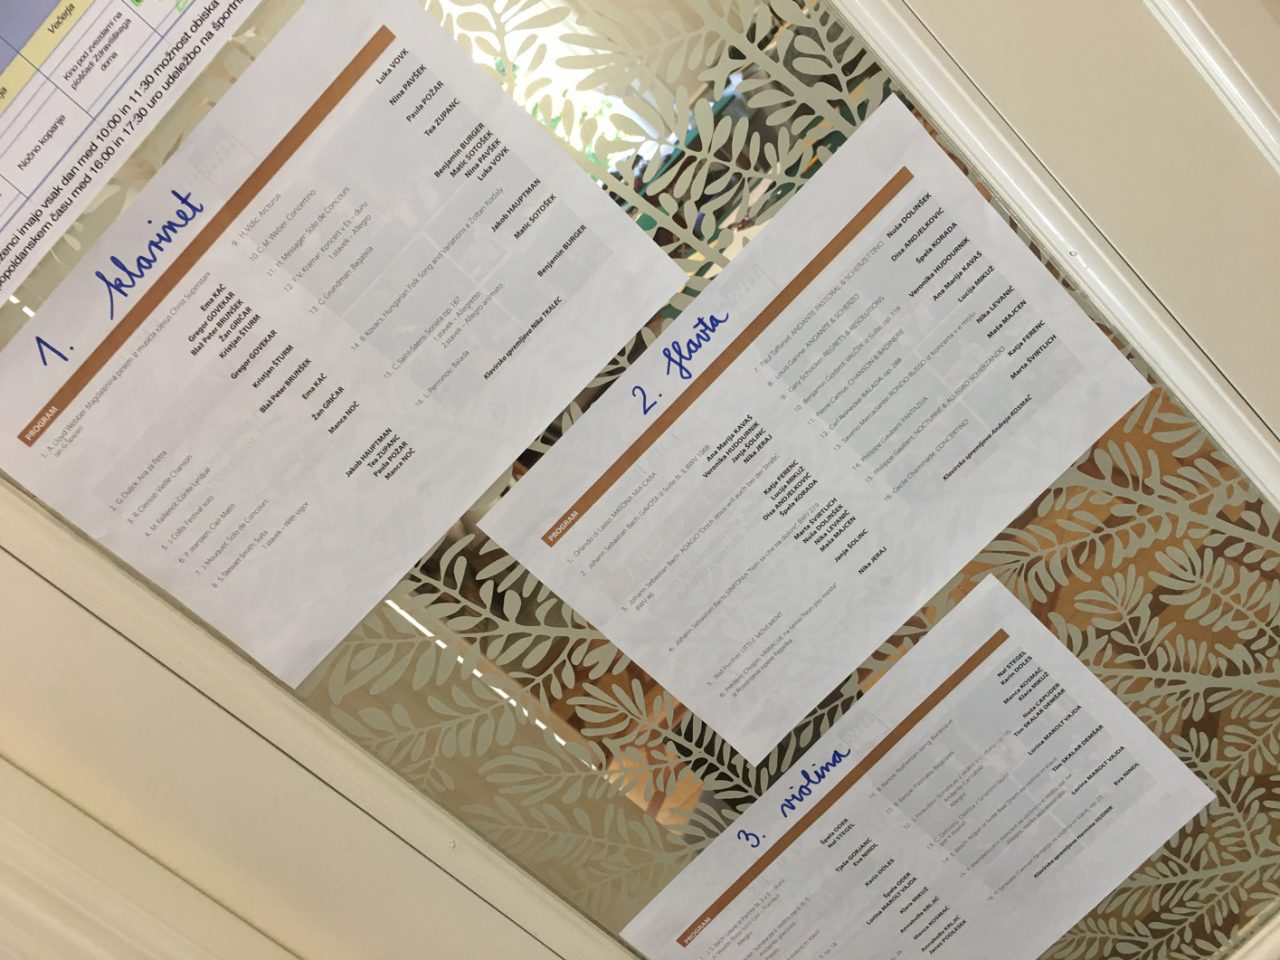 Večerja
Kino pod zvezdami na
ploščadi Zdraviliškega
doma
Nočno kopanje
imajo vsak dan med 10:00 in 11:30 možnost obiska
času med 16:00 in 17:30 uro udeležbo na
1. klarinet
PROGRAM
1. A. Lloyd Webber: Magdalenina pesem iz musicla Jesus Christ Superstars
Ema KAČ
Gregor GOVEKAR
Blaž Peter BRUNŠEK
Žan GRIČAR
Kristjan ŠTURM
2. G. Duljck: Aria za Petra
Gregor GOVEKAR
3. R. Clerisse: Vieille Chanson
Kristjan ŠTURM
4. M. Faillenot: Cante Lyrique
Blaž Peter BRUNŠEK
5. J. Collis: Festival solo
Ema KAČ
6. P. Jeanjean: Clair Matin
Žan GRIČAR
7. J. Mouquet: Solo de Concours
Manca NOČ
8. S. Stewart Smith: Suita
I.stavek - »With vigo«
Jakob HAUPTMAN
Tea ZUPANC
Paula POŽAR
Manca NOČ
9. H. Vidic: Arcturus
Luka VOVK
10. C.M. Weber: Concertino
Nina PAVŠEK
11. H. Messager: Solo de Concours
Paula POŽAR
12. F. V. Kramar: Koncert v Es - duru
1.stavek - Allegro
Tea ZUPANC
13. C. Grundman: Bagatela
Benjamin BURGER
Matic SOTOŠEK
Nina PAVŠEK
Luka VOVK
14. B. Kovacs: Hungarian Folk Song and Variations a Zoltan Kodály
Jakob HAUPTMAN
15. C. Saint-Säens: Sonata op. 167
1.stavek - Allegretto
2.stavek - Allegro animato
Matic SOTOŠEK
16. L. Perminov: Balada
Benjamin BURGER
Klavirska spremljava Niko TKALEC
2. flavta
PROGRAM
1. Orlando di Lasso: MATONA MIA CARA
2. Johann Sebastian Bach: GAVOTA iz Suite št. 3, BWV 1068
Ana Marija KAVAŠ
Veronika HUDOURNIK
Janja ŠOLINC
Nika JERAJ
3. Johann Sebastian Bach: ADAGIO "Doch Jesus will auch bei der Straffe",
BWV 46
Katja FERENC
Lucija MIKUŽ
Disa ANDJELKOVIĆ
Špela KORADA
4. Johann Sebastian Bach: SINFONIA "Non sa che sia dolore", BWV 219
Marta ŠVIRTLICH
Nuša DOLINŠEK
Nika LEVANIČ
Maša MAJCEN
5. Blaž Pucihar: LITTLE MOVEMENT
Janja ŠOLINC
6. Frédéric Chopin: VARIACIJE na temo "Non piu mesta"
iz Rossinijeve opere Pepelka
Nika JERAJ
7. Paul Taffanel: ANDANTE PASTORAL & SCHERZETTINO
Nuša DOLINŠEK
8. Louis Ganne: ANDANTE & SCHERZO
Disa ANDJELKOVIĆ
9. Gary Schocker: REGRETS & RESOLUTIONS
Špela KORADA
10. Benjamin Godard: VALČEK iz Suite, op. 116
Veronika HUDOURNIK
11. Pierre Camus: CHANSON & BADINERIE
Ana Marija KAVAŠ
12. Carl Reinecke: BALADA, op. 288
Lucija MIKUŽ
13. Saverio Mercadante: RONDO RUSSO iz Koncerta v e molu
Nika LEVANIČ
14. Philippe Gaubert: FANTAZIJA
Maša MAJCEN
15. Philippe Gaubert: NOCTURNE & ALLEGRO SCHERZANDO
Katja FERENC
16. Cécile Chaminade: CONCERTINO
Marta ŠVIRTLICH
Klavirska spremljava Andreja KOSMAČ
3. violina
PROGRAM
Špela ODER
Nal STEGEL
Tjaša GORJANC
Eva NINDL
Karin DOLES
Špela ODER
Lorina MAROLT VAJDA
Klara MIKUŽ
Annabella KRLJIĆ
Manca KOSMAČ
Annabella KRLJIĆ
Nal STEGEL
Karin DOLES
Mance KOSMAČ
Klara MIKUŽ
Neža CAPUDER
Tim SKALAR DEMŠAR
Lorina MAROLT VAJDA
Tim SKALAR DEMŠAR
Lorina MAROLT VAJDA
Eva NINDL
Klavirska spremljava Hermina HUDNIK